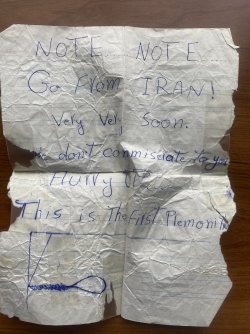 NOTE... NOTE...
Go From IRAN!
Very Very Soon.
we don't commiserate to you
Hurry
This is the first Plemonit